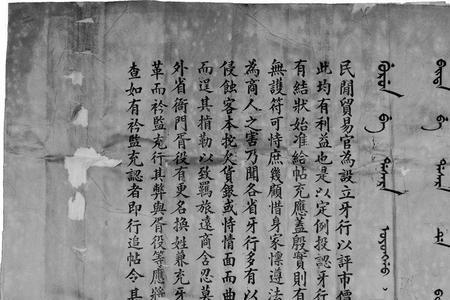 民閒貿易官為設立牙行以評市價
此均有利益也是以定例投認牙行
有結狀始准給帖充應蓋殷實則有
無護符可恃庶幾顧惜身家懍遵法
為商人之害乃聞各省牙行多有以
侵蝕客本拖欠貨銀或恃情面而曲
而逞其掯勒以致羈旅遠商含忍莫
外省衙門胥役有更名換姓兼充牙
革而衿監充行其弊與胥役等應將
查如有衿監充認者即行追帖令其